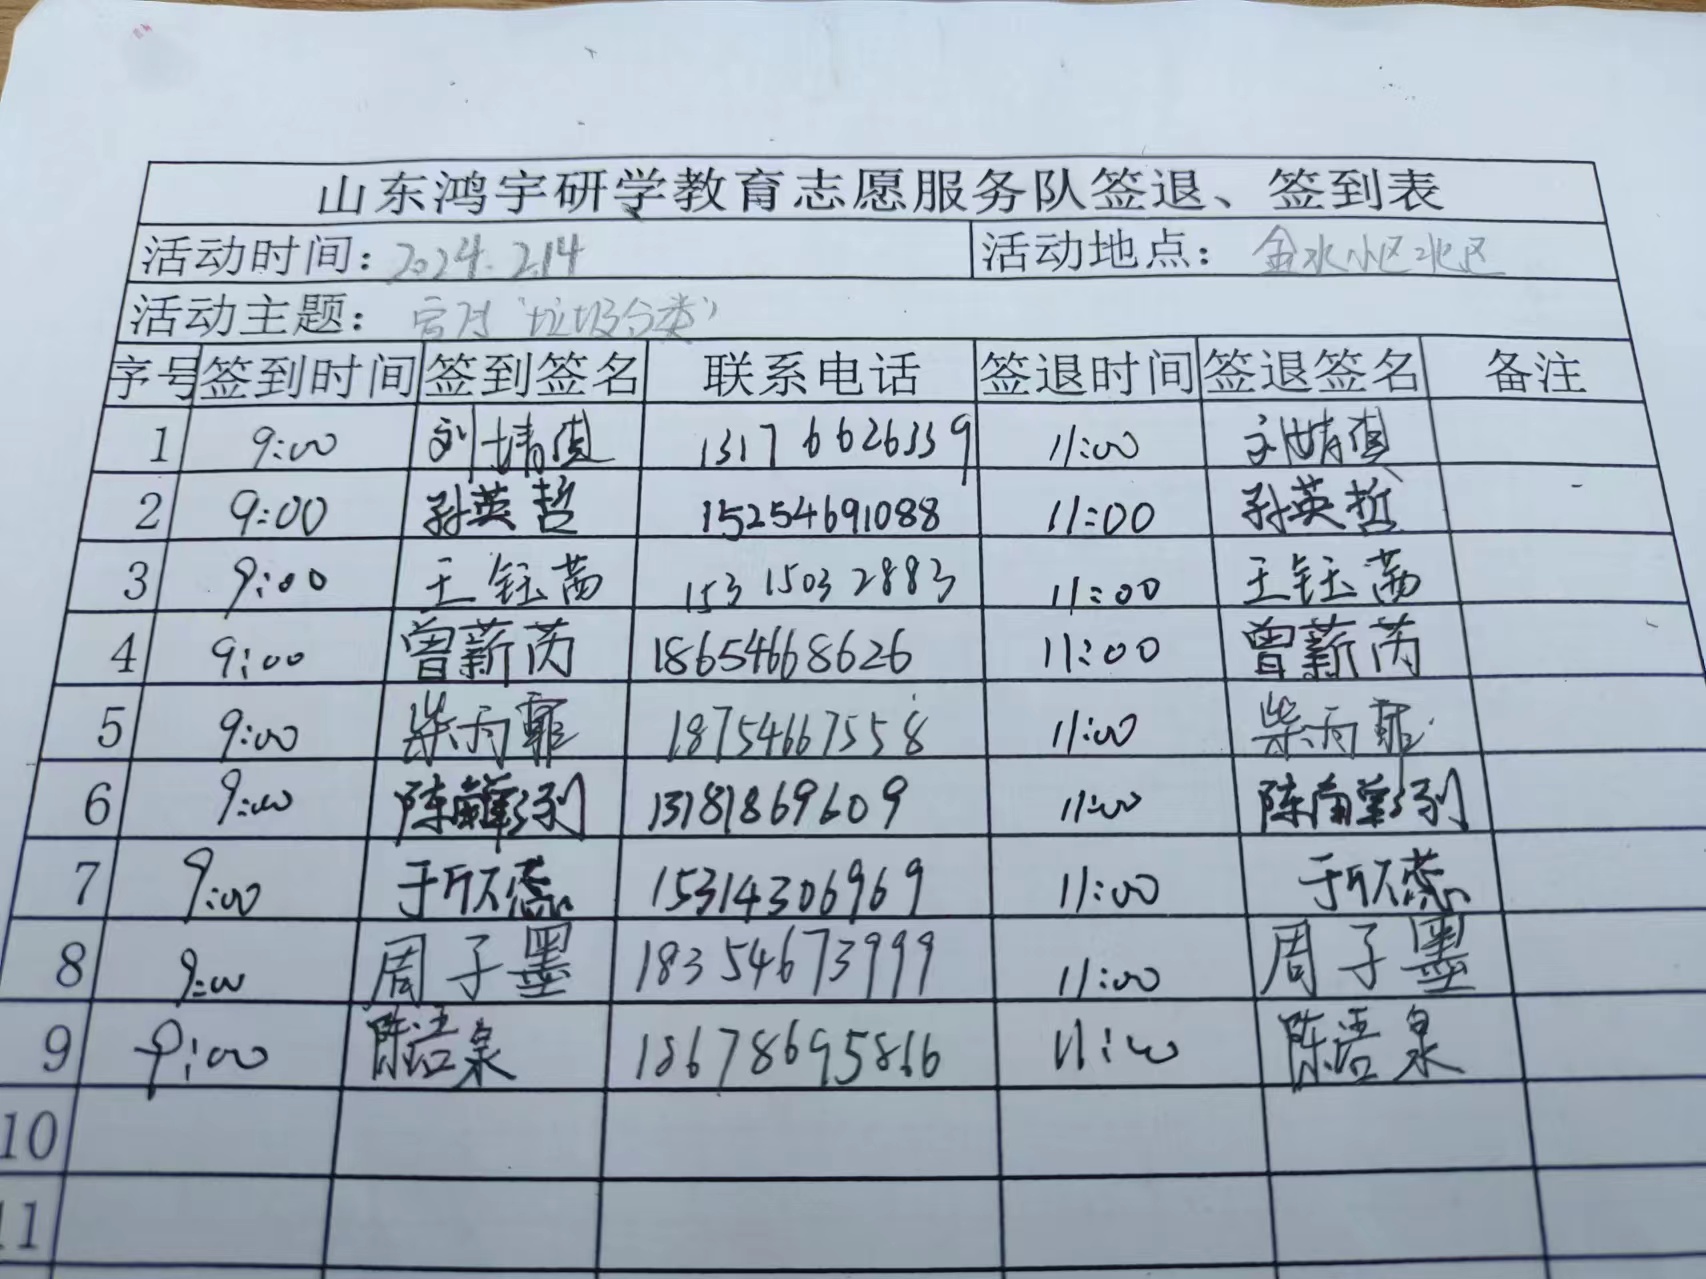 山东鸿宇研学教育志愿服务队签退、签到表
活动时间：2024.2.14 活动地点：金水小区北区
活动主题： "垃圾分类"
序号 签到时间 签到签名 联系电话 签退时间 签退签名 备注
1 9:00 刘婧 13176626339 11:00 刘婧
2 9:00 孙英哲 15254691088 11:00 孙英哲
3 9:00 王钰茜 15315032883 11:00 王钰茜
4 9:00 曾薪芮 18654668626 11:00 曾薪芮
5 9:00 柴雨霏 18754667558 11:00 柴雨霏
6 9:00 陈 13181869609 11:00 陈
7 9:00 于欣蕊 15314306969 11:00 于欣蕊
8 9:00 周子墨 18354673999 11:00 周子墨
9 9:00 陈浩泉 18678695866 11:00 陈浩泉
10
11